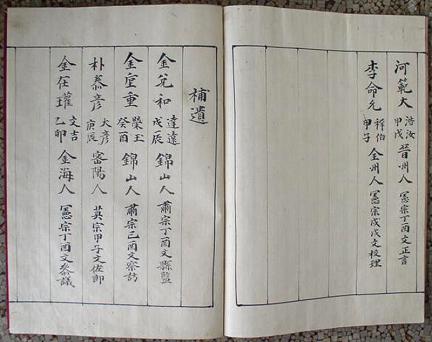 河範大 浩汝 甲戌 晉州人 憲宗丁酉文正言
李命允 稚伯 甲子 全州人 憲宗戊戌文校理
補遺
金兌和 達遠 戊辰 錦山人 肅宗丁酉文縣監
金重 榮玉 癸酉 錦山人 肅宗己酉文察訪
朴泰彦 大彦 庚辰 密陽人 英宗甲子文佐郎
金在瓘 文吉 乙卯 金海人 憲宗丁酉文參議